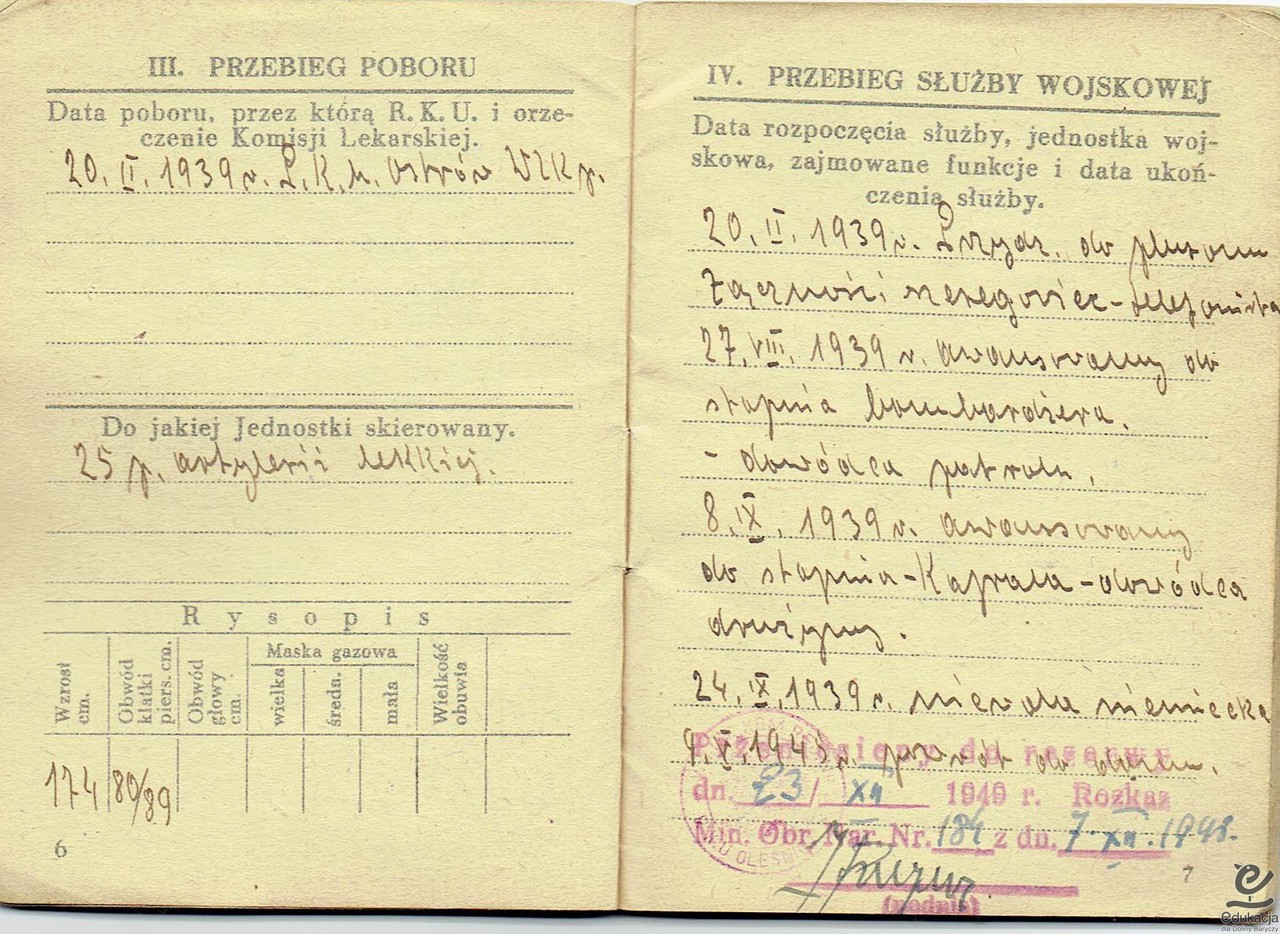 III. PRZEBIEG POBORU
Data poboru, przez którą R. K. U. i orze-
czenie Komisji Lekarskiej.
20. II. 1939 r. P.K.U. Ostrów Wlkp.
Do jakiej Jednostki skierowany.
25 p. artylerii lekkiej.
Rysopis
Wzrost cm.
Obwód klatki piers. cm.
Obwód głowy cm.
Maska gazowa
wielka
średn.
mała
Wielkość obuwia
174
80/89
6
IV. PRZEBIEG SŁUŻBY WOJSKOWEJ
Data rozpoczęcia służby, jednostka woj-
skowa, zajmowane funkcje i data ukoń-
czenia służby.
20. II. 1939 r. Przydz. do plutonu
łączności szeregowiec-telefonista
27. VIII. 1939 r. awansowany do
stopnia bombardiera.
- dowódca patrolu.
8. IX. 1939 r. awansowany
do stopnia-Kaprala-dowódca
drużyny.
24. IX. 1939 r. niewola niemiecka
9. V. 1945 r. powrót do domu.
Przeniesiony do rezerwy
dn. 23/XII 1949 r. Rozkaz
Min. Obr. Nar. Nr. 184 z dn. 7.XII.1948.
(podpis)
7
edukacja
dla Doliny Baryczy